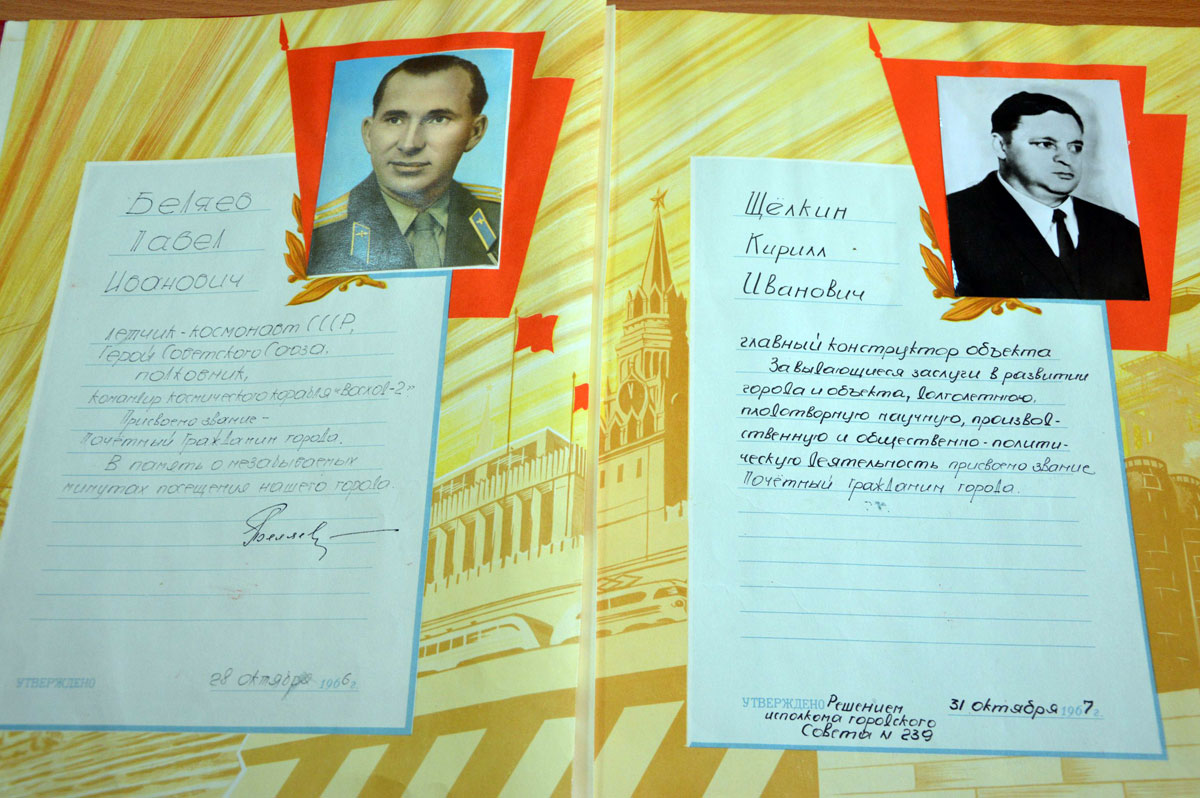 Беляев
Павел
Иванович
летчик-космонавт СССР,
Герой Советского Союза.
полковник,
командир космического корабля «Восход-2»
Присвоено звание -
Почётный Гражданин города.
В память о незабываемых
минутах посещения нашего города.
Беляев
УТВЕРЖДЕНО 28 октября 1966 г.
Щёлкин
Кирилл
Иванович
главный конструктор объекта
За выдающиеся заслуги в развитии
города и объекта, долголетнюю,
плодотворную научную, производ-
ственную и общественно-полити-
ческую деятельность присвоено звание
Почётный Гражданин города.
УТВЕРЖДЕНО Решением 31 октября 1967 г.
исполкома городского
Советы N 239